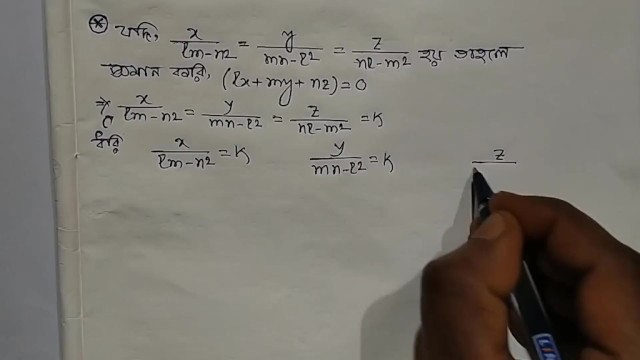 * যদি, x/(lm-n2) = y/(mn-l2) = z/(nl-m2) হয় তাহলে
প্রমাণ করি, (lx+my+nz)=0
⇒ x/(lm-n2) = y/(mn-l2) = z/(nl-m2) = k
ধরি x/(lm-n2) = k y/(mn-l2) = k z